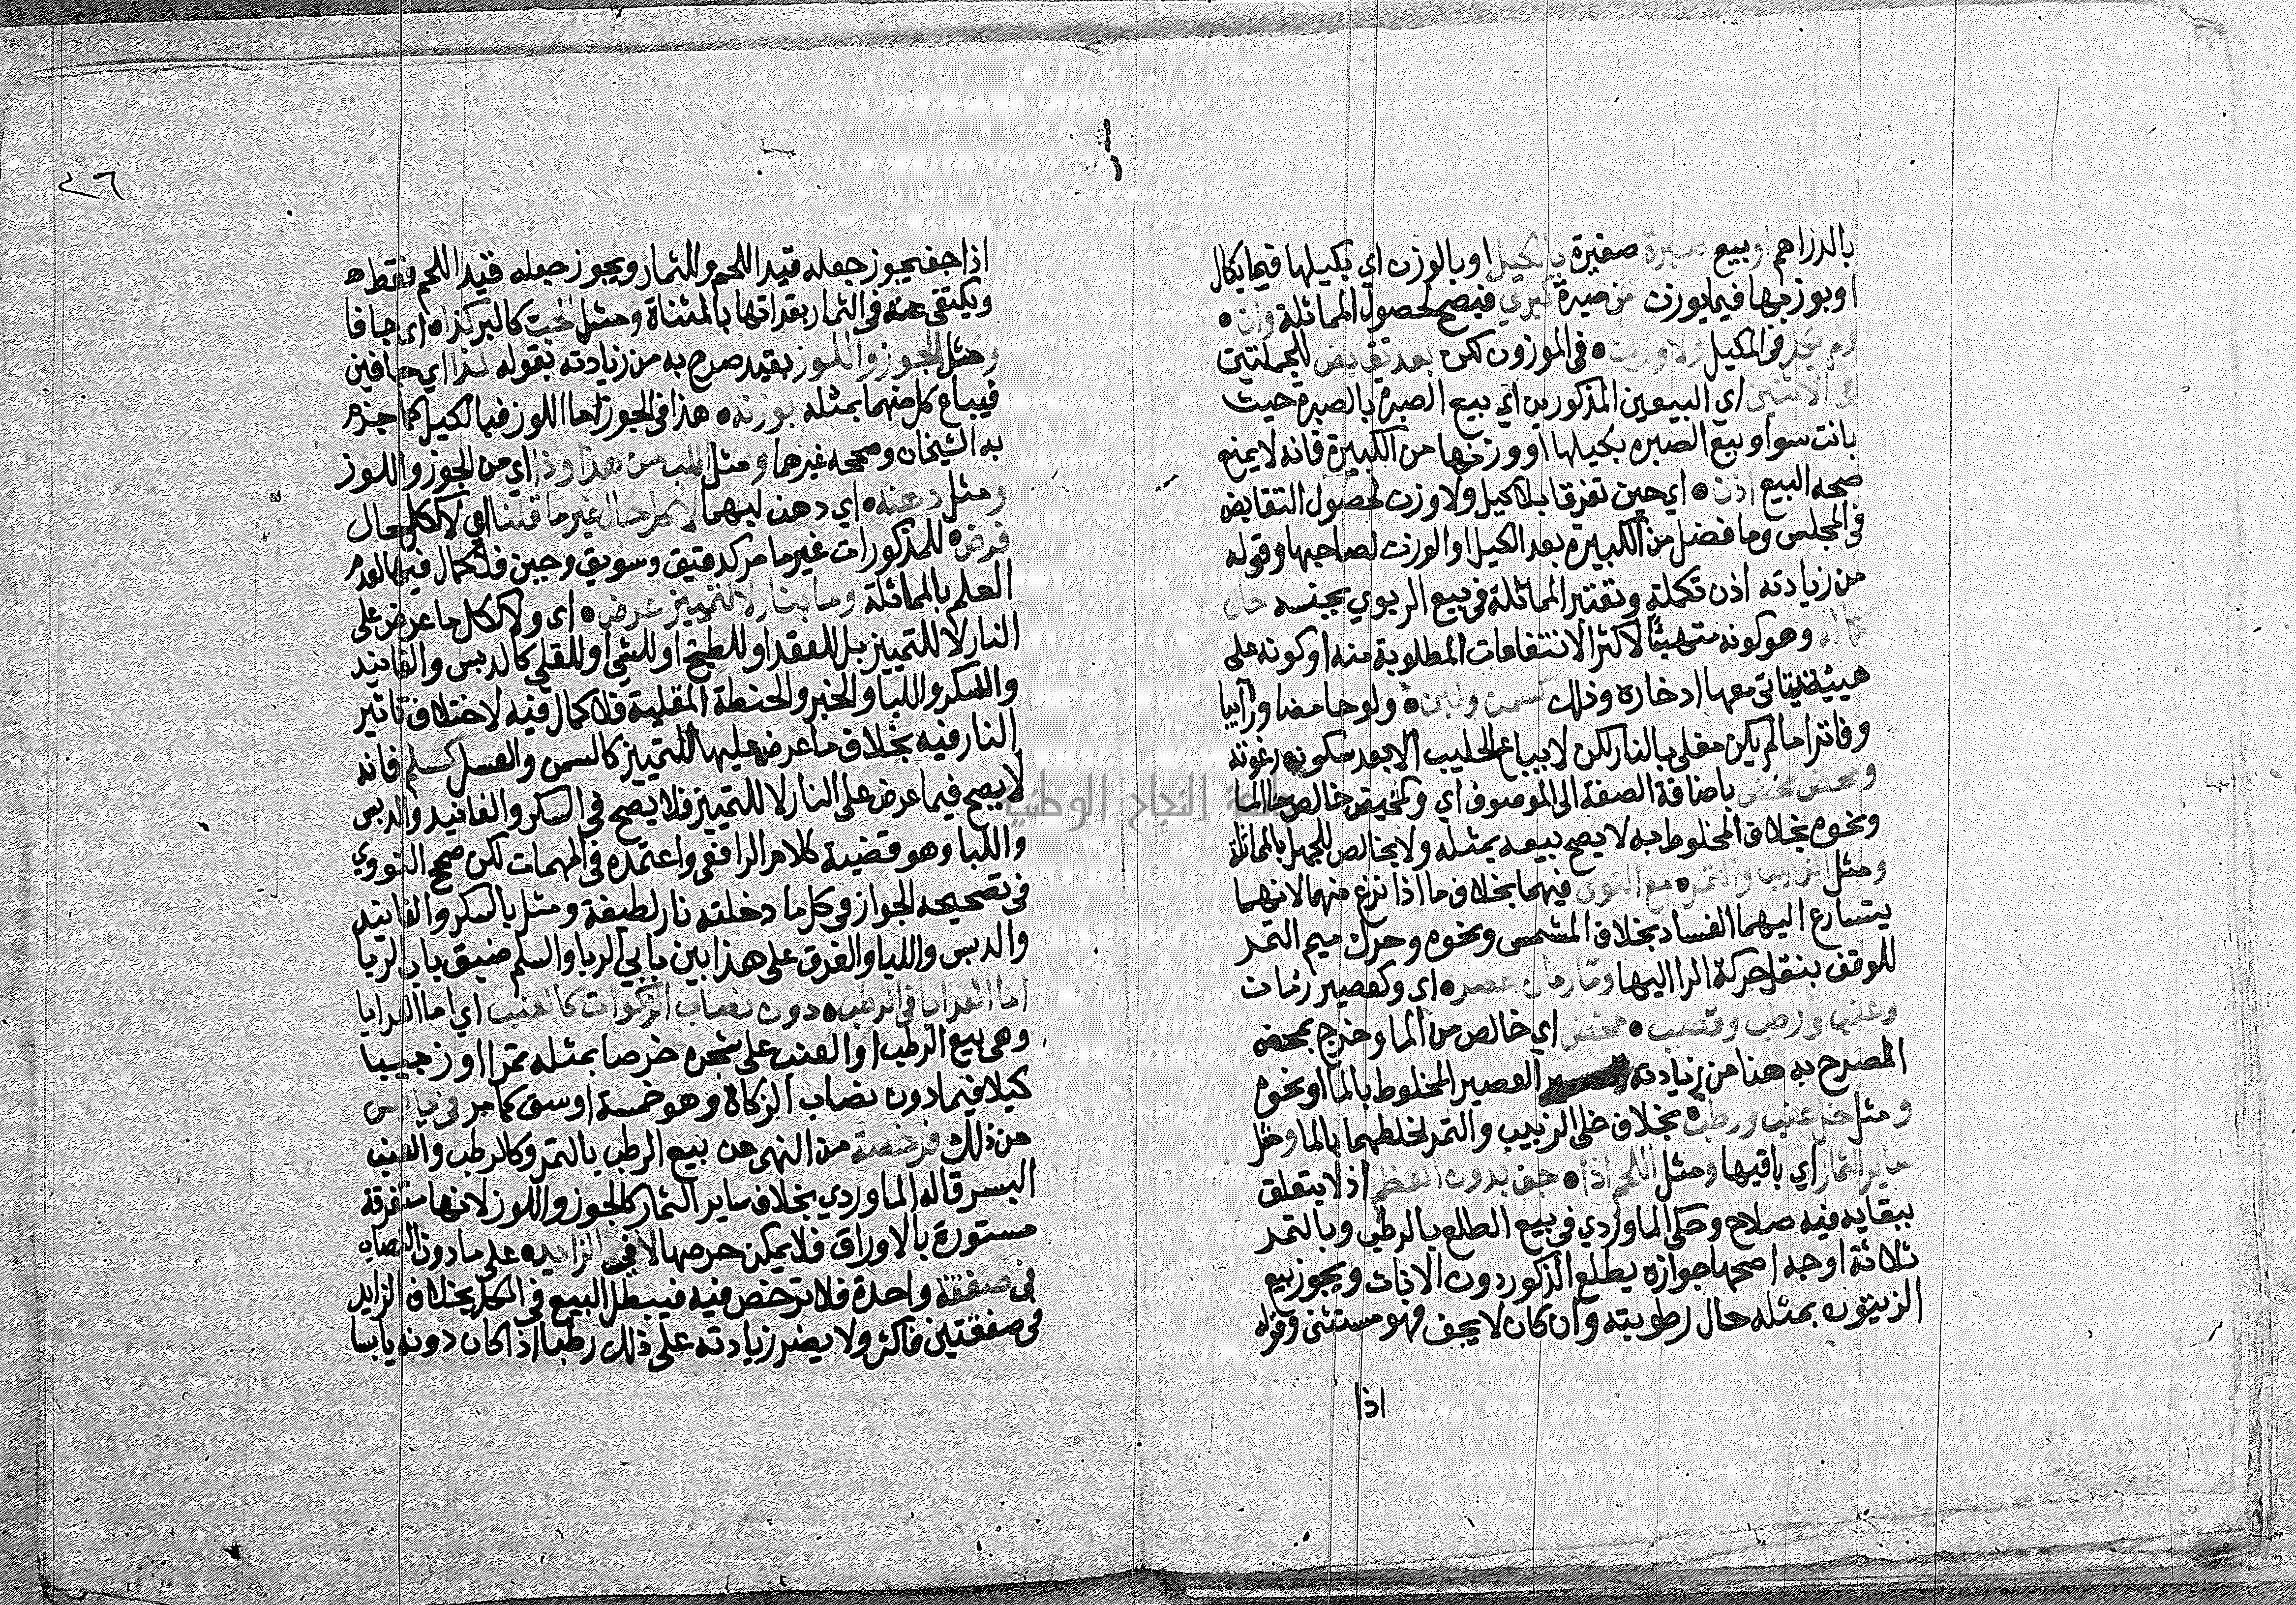 بالدراهم او بيع صبرة صغيرة بالكيل او بالوزن اي بكيلها فيما يكال
او بوزنها فيما يوزن من صبرة كبري فيصح لحصول المماثلة وان •
لم يكل في المكيل ولا وزنت • في الموزون لكن بعد تقابض للجملتين
في الاثنتين اي البيعين المذكورين اي بيع الصبرة بالصبرة حيث
بانت سوا وبيع الصبره بكيلها او وزنها من الكبيرة فانه لا يمنع
صحه البيع اذن • اي حين تفرقا بلا كيل ولا وزن لحصول التقابض
في المجلس وما فضل من الكبيره بعد الكيل او الوزن لصاحبها وقوله
من زيادته اذن تكملة وتعتبر المماثلة في بيع الربوي بجنسه حال
كماله وهو كونه متهيئا لاكثر الانتفاعات المطلوبة منه او كونه على
هيئة يتاتى معها ادخاره وذلك كسمن ولبن • ولو حامضا ورايبا
وفاترا ما لم يكن مغلي بالنار لكن لا يباع الحليب الا بعد سكون رغوته
ومحض مخض باضافة الصفة الى الموصوف اي وكمخيض خالص من الما
ونحوه بخلاف المخلوط به لا يصح بيعه بمثله ولا بخالص للجهل بالمماثلة
ومثل الزبيب والتمر • مع النوى فيهما بخلاف ما اذا نزع منهما لانهما
يتسارع اليهما الفساد بخلاف المشمس ونحوه وحرك ميم التمر
للوقف بنقل حركة الرا اليها وكارمان عصر • اي وكعصير رمان
وعنب ورطب وقصب • محض اي خالص من الما وخرج بمحض
المصرح به هنا من زيادته العصير المخلوط بالما او نحوه
ومثل خل عنب ورطب • بخلاف خل الزبيب والتمر لخلطهما بالما ومثل
ساير الثمار اي باقيها ومثل اللحم اذا • جف بدون العظم اذ لا يتعلق
ببقايه فيه صلاح وحكى الماوردي في بيع الطلع بالرطب وبالتمر
ثلاثة اوجه اصحها جوازه بطلع الذكور دون الاناث ويجوز بيع
الزيتون بمثله حال رطوبته وان كان لا يجف فهو مستثنى وقوله
اذا
٢٦
اذا جف يجوز جعله قيد اللحم وللثمار ويجوز جعله قيد اللحم فقط ه
ويكتفي عنه في الثمار بقد اتها بالمثناة ومثل الحب كالبر كذا • اي جافا
ومثل الجوز واللوز بقيد صرح به من زيادته بقوله كذا اي جافين
فيباع كل منهما بمثله بوزنه • هذا في الجوز اما اللوز فبالكيل كما جزم
به الشيخان وصححه غيرهما ومثل اللب من هذا وذا اي من الجوز واللوز
ومثل دهنه • اي دهن لبهما لا كل حال غير ما قلنا اي لا لكل حال
فرض • للمذكورات غير ما مر كدقيق وسويق وجبن فلا كمال فيها لعدم
العلم بالمماثلة وما بنار لا لتمييز عرض • اي ولا لكل ما عرض على
النار لا للتمييز بل للعقد او للطبخ او للشي او للقلي كالدبس والفانيد
والسكر واللبا والخبز والحنطة المقلية فلا كمال فيه لاختلاف تاثير
النار فيه بخلاف ما عرض عليها للتمييز كالسمن والعسل كسلم فانه
لا يصح فيما عرض على النار لا للتمييز فلا يصح في السكر والفانيد والدبس
واللبا وهو قضية كلام الرافعي واعتمده في المهمات لكن صحح النووي
في تصحيحه الجواز في كل ما دخلته نار لطيفة ومثل بالسكر والفانيد
والدبس واللبا والفرق على هذا بين بابي الربا والسلم ضيق باب الربا
اما العرايا في الرطب • دون نصاب الزكوات كالعنب اي اما العرايا
وهي بيع الرطب او العنب على شجره خرصا بمثله تمرا او زبيبا
كيلا فيما دون نصاب الزكاة وهو خمسة اوسق كما مر في يابس
من ذلك فرخصة من النهي عن بيع الرطب بالتمر وكالرطب والعنب
البسر قاله الماوردي بخلاف ساير الثمار كالجوز واللوز لانها متفرقة
مستورة بالاوراق فلا يمكن خرصها لا في الزايد • على ما دون النصاب
في صفقة واحدة فلا ترخص فيه فيبطل البيع في الكل بخلاف الزايد
في صفقتين فاكثر ولا يضر زيادته على ذلك رطبا اذا كان دونه يابسا
جامعة النجاح الوطنية